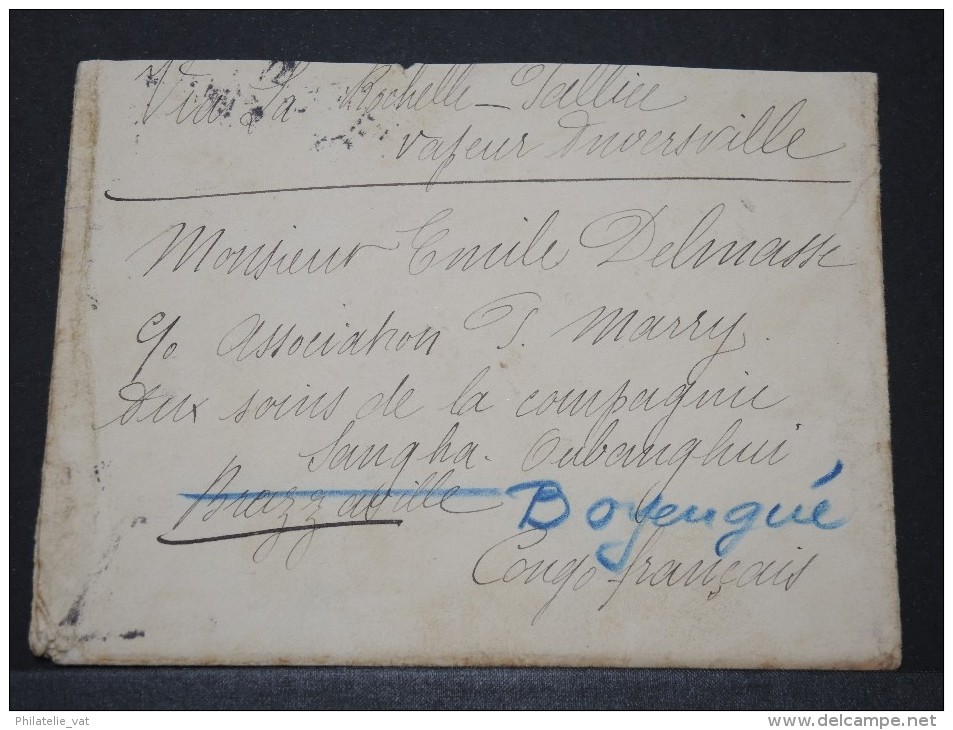 Via La Rochelle-Pallice
vapeur Anversville
Monsieur Emile Delmasse
c/o Association P. Marry.
Aux soins de la compagnie
Sangha-Oubanghui
Brazzaville Boyengué
Congo français
Philatelie_vat
www.delcampe.net